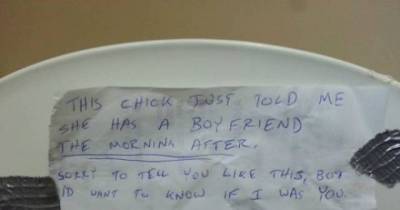 THIS CHICK JUST TOLD ME
SHE HAS A BOYFRIEND
THE MORNING AFTER.
SORRY TO TELL YOU LIKE THIS, BUT
I'D WANT TO KNOW IF I WAS YOU.